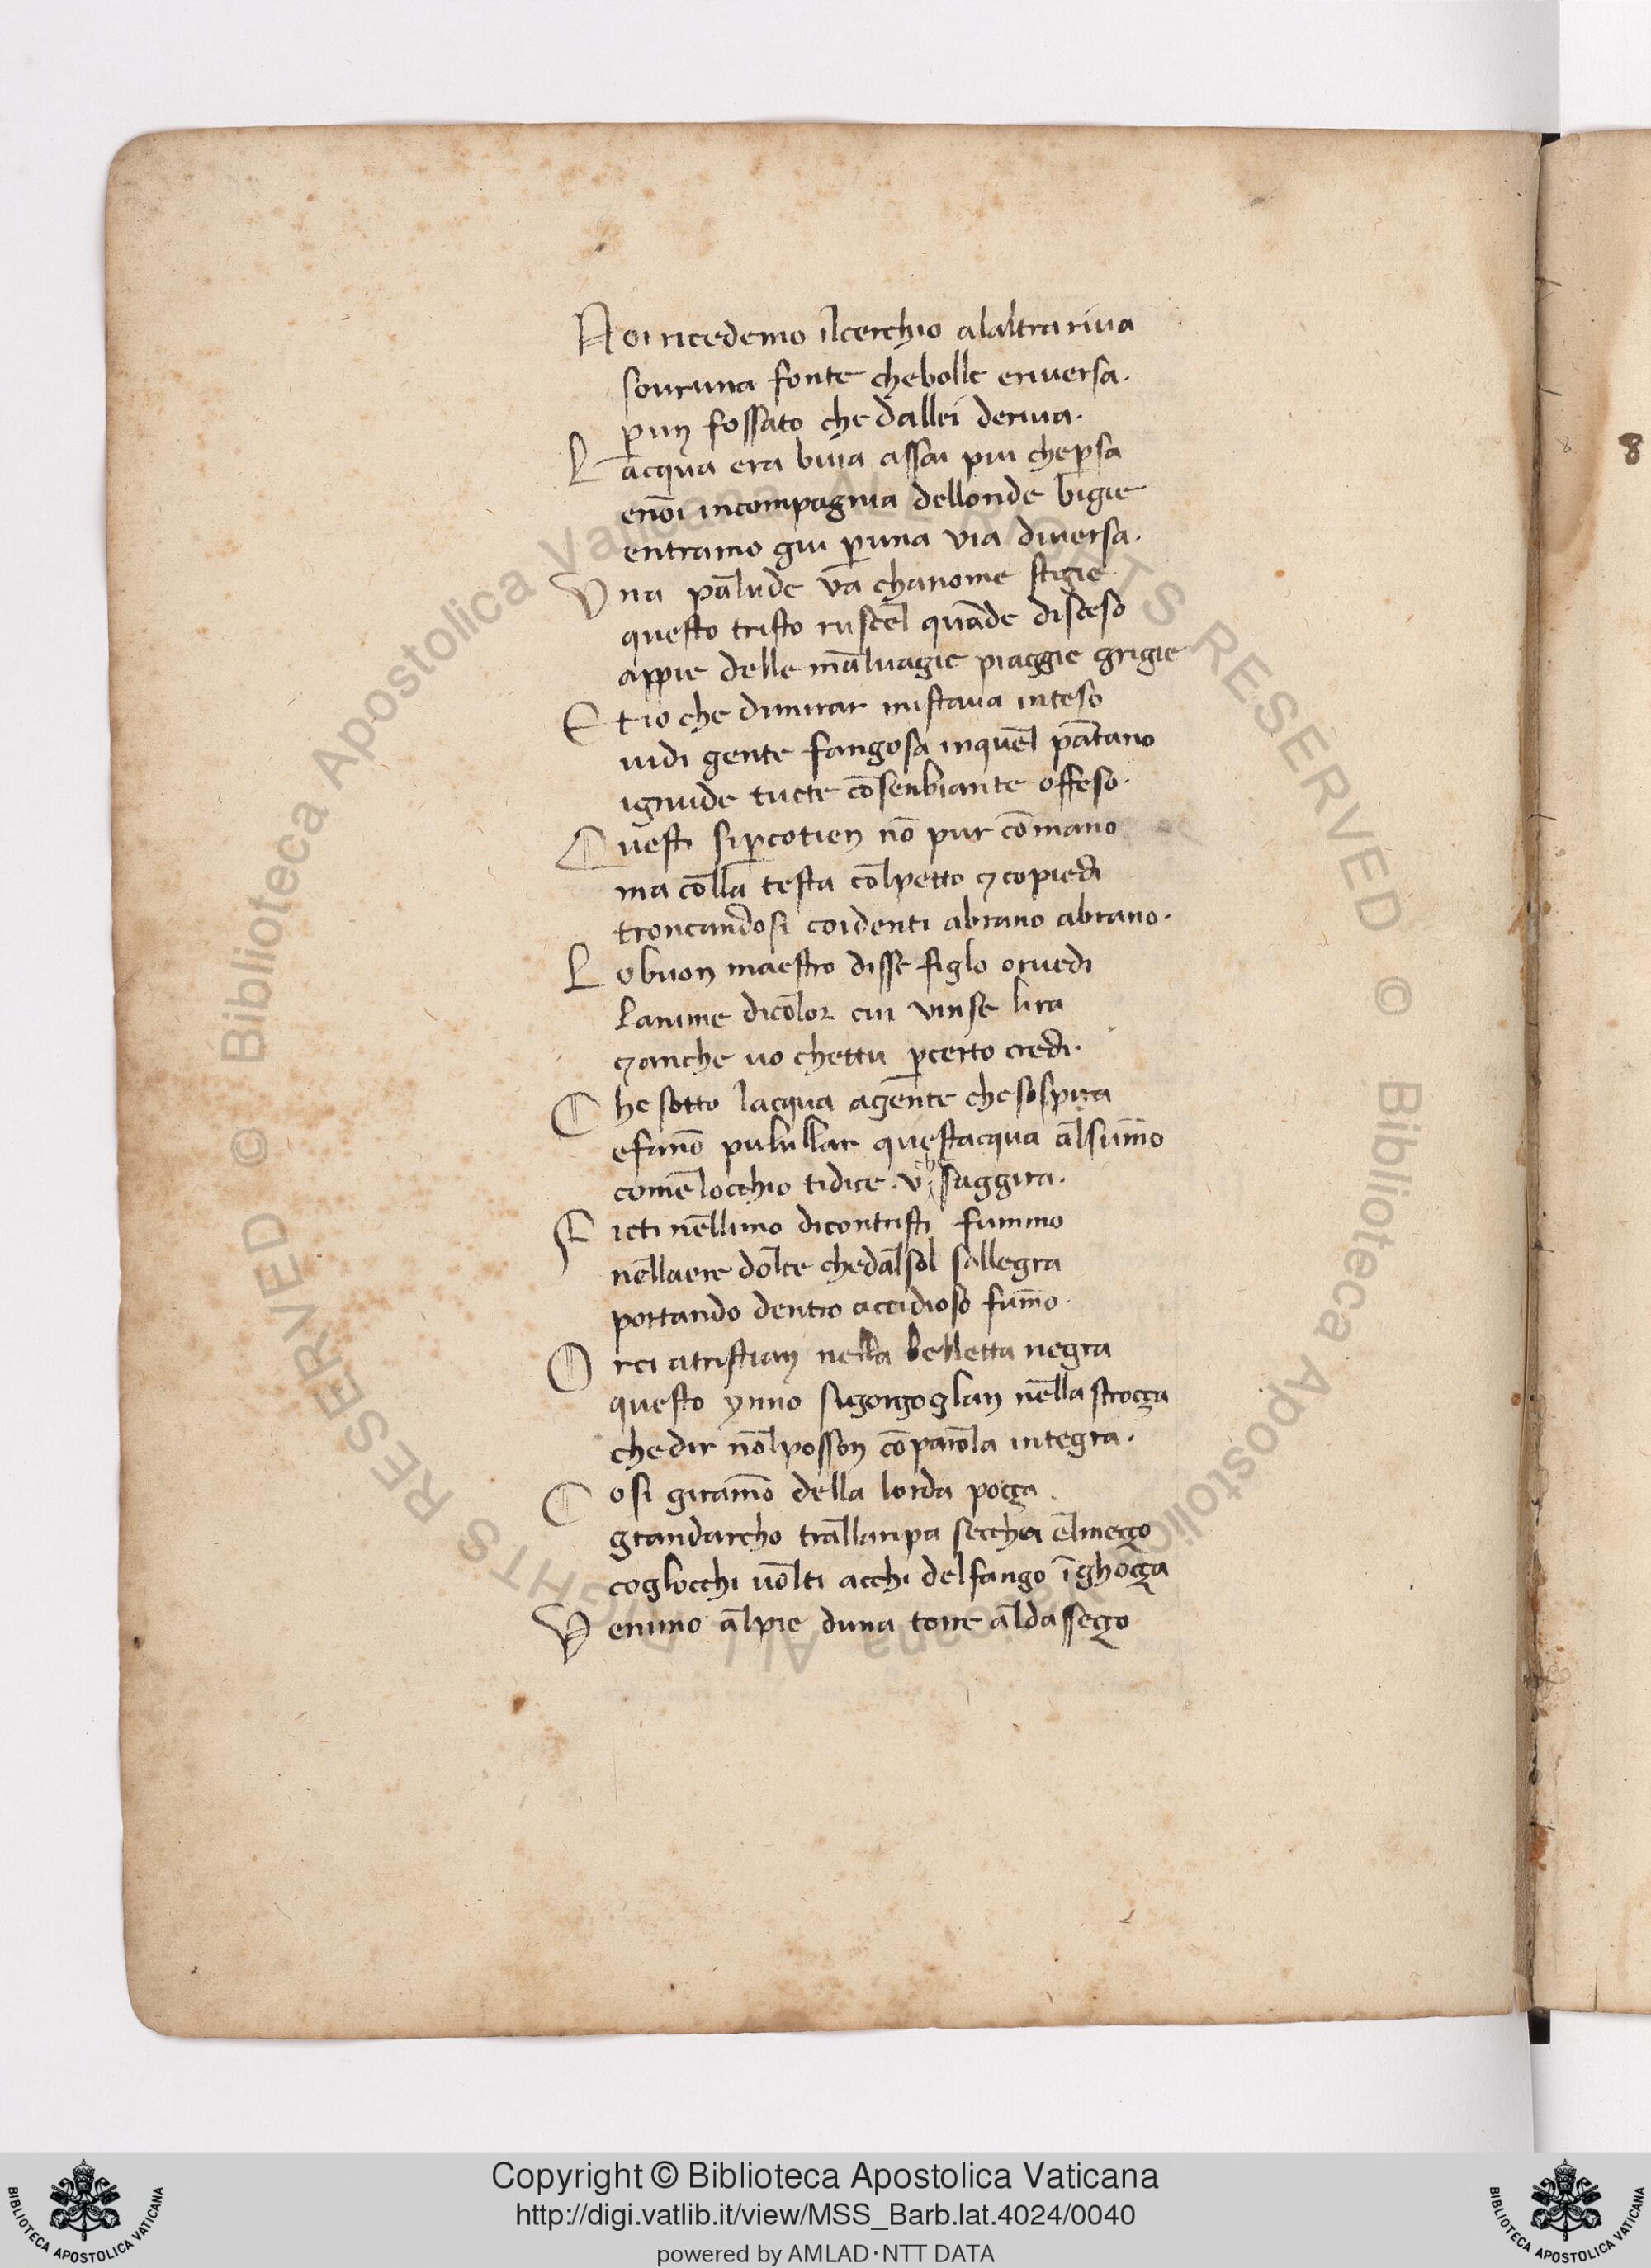 Noi ricedemo ilcerchio alaltra riua
souruna fonte chebolle eriuersa.
ꝑun fossato che dallei deriua.
Lacqua era buia assai piu chepsa
enoi incompagnia dellonde bigie
entramo giu ꝑuna via diuersa.
Una palude va chanome stigie
questo tristo ruscel quande disceso
appie delle maluagie piaggie grigie
Et io che dimirar mistaua inteso
uidi gente fangosa inquel pantano
ignude tucte cōsenbiante offeso.
Questi siꝑcotien nō pur cōmano
ma colla testa colpetto ⁊ copiedi
troncandosi coidenti abrano abrano.
Lo buon maestro disse figlo oruedi
lanime dicolor cui vinse lira
⁊ anche uo chettu ꝑcerto credi.
Che sotto lacqua agente che sospira
efanō pulullar questacqua alsummo
comelocchio tidice. v che saggira.
Ficti nellimo dicontristi fummo
nellaere dolce chedalsol sallegra
portando dentro accidioso fumō.
Or ci atristian nella belletta negra
questo ynno sigorgoglan nella strocça
che dir nolposson cōparola integra.
Cosi giramō della lorda pocça
grandarcho trallaripa seccha elmeço
coglocchi uolti acchi delfango īghocça
Uenimo alpie duna torre aldasseço
8
Biblioteca Apostolica Vaticana ALL RIGHTS RESERVED © Biblioteca Apostolica Vaticana ALL RIGHTS RESERVED ©
Copyright © Biblioteca Apostolica Vaticana
http://digi.vatlib.it/view/MSS_Barb.lat.4024/0040
powered by AMLAD·NTT DATA
BIBLIOTECA APOSTOLICA VATICANA
BIBLIOTECA APOSTOLICA VATICANA